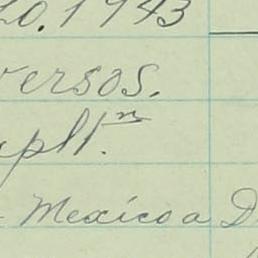 20. 1943
versos.
uplt.ᵐ
Mexico a D